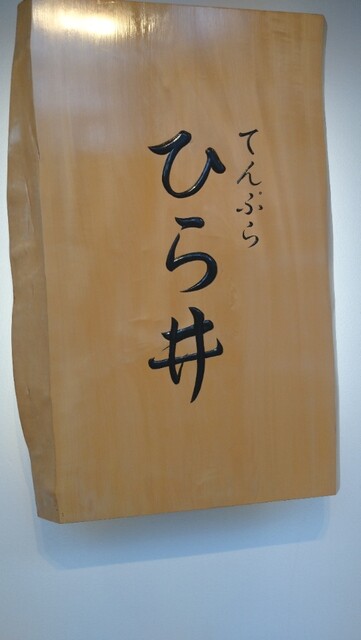 てんぷら
ひら井